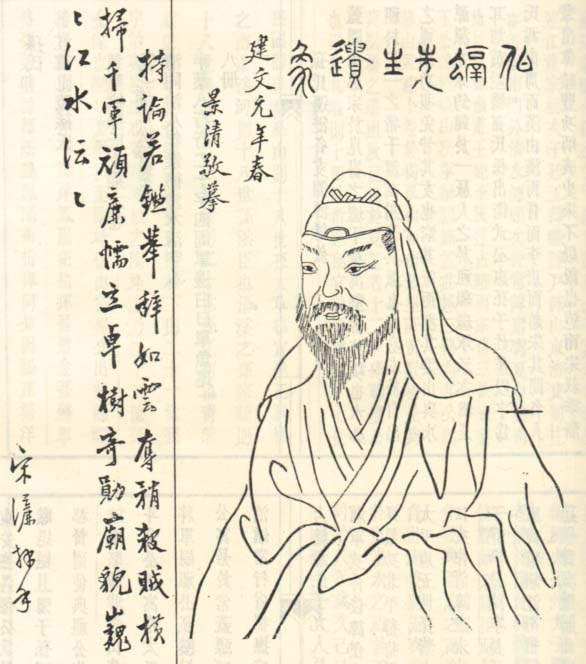 先生遺象
建文元年春
景清敬摹
持論若鑑舉辞如雲奪稍殺賊横
掃千軍頑廉懦立卓樹奇勛廟貌巍
〻江水沄〻
宋濂拜手